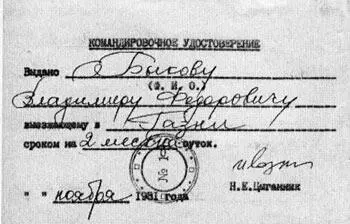 КОМАНДИРОВОЧНОЕ УДОСТОВЕРЕНИЕ
Выдано Быкову
(Ф. И О.)
Владимиру Федоровичу
выезжающему в Газни
сроком на 2 месяца суток.
№
Н.Е.Цыганник
" " ноября 1981 года